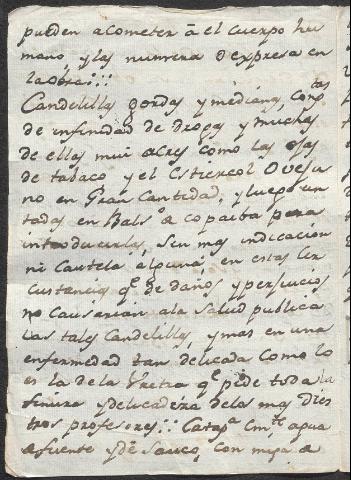 pueden acometer â el cuerpo hu
mano, y las numera o expresa en
la obra:::
Candelillas gordas y medianas, compstas
de infinidad de drogas y muchas
de ellas mui acres como las ojas
de tabaco y el Estiercol Oveju
no en Gran Cantidad, y luego un
tadas en Bals.o de copaiba para
introducirlas, sin mas indicacion
ni Cautela alguna, en estas Cir
custancias q.e de daños y perjuicios
no causarian ala salud publica
las tales Candelillas, y mas en una
enfermedad tan delicada como lo
es la dela Uretra q.e pide toda la
finura y delicadeza delos mas dies
tros profesores::: Catap.a Cm.te agua
de fuente y de Sauco, con miga de